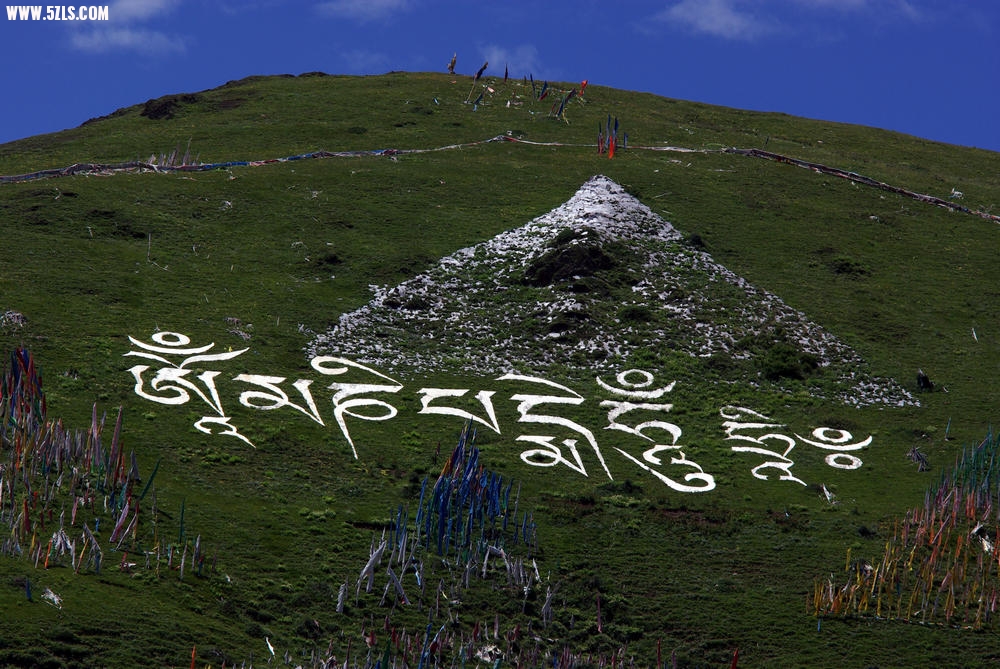 WWW.5ZLS.COM
ཨོཾ་མ་ཎི་པདྨེ་ཧཱུྃ་ཧྲཱིཿ